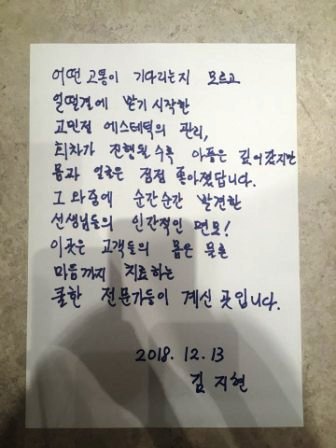 어떤 고통이 기다리는지 모르고
얼떨결에 받기 시작한
고민정 에스테틱의 관리,
회차가 진행될수록 아픔은 깊어갔지만
몸과 얼굴은 점점 좋아졌답니다.
그 와중에 순간순간 발견한
선생님들의 인간적인 면모!
이곳은 고객들의 몸은 물론
마음까지 치료하는
쿨한 전문가들이 계신 곳입니다.
2018. 12. 13
김지현